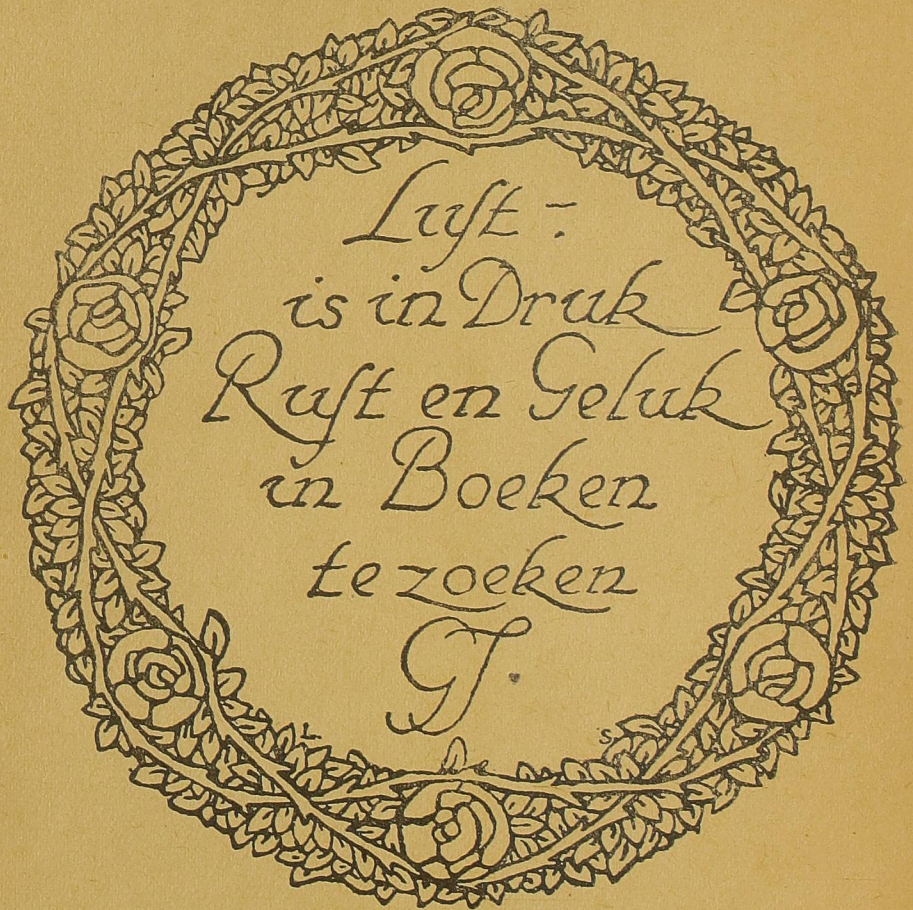 Luſt :
is in Druk
Ruſt en Geluk
in Boeken
te zoeken
GJ.
L S